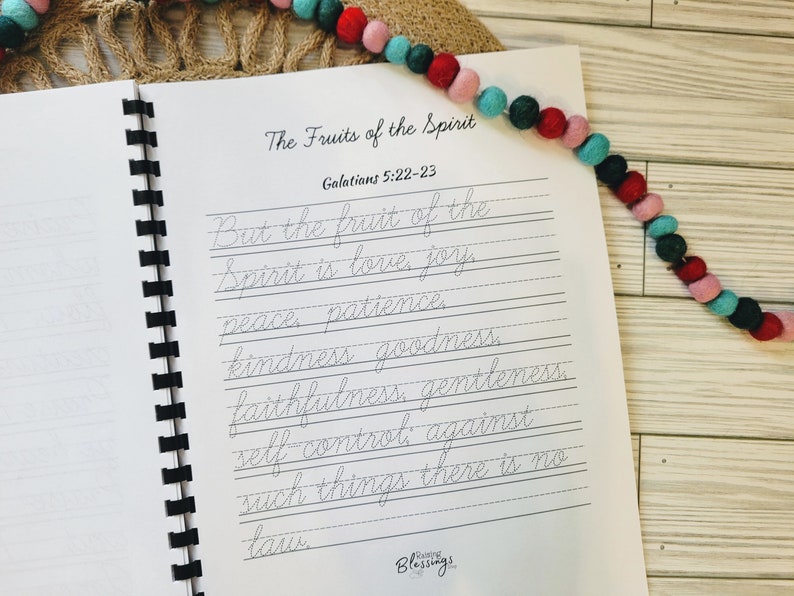 The Fruits of the Spirit
Galatians 5:22-23
But the fruit of the
Spirit is love, joy,
peace, patience,
kindness goodness,
faithfulness, gentleness,
self control; against
such things there is no
law.
Raising
Blessings